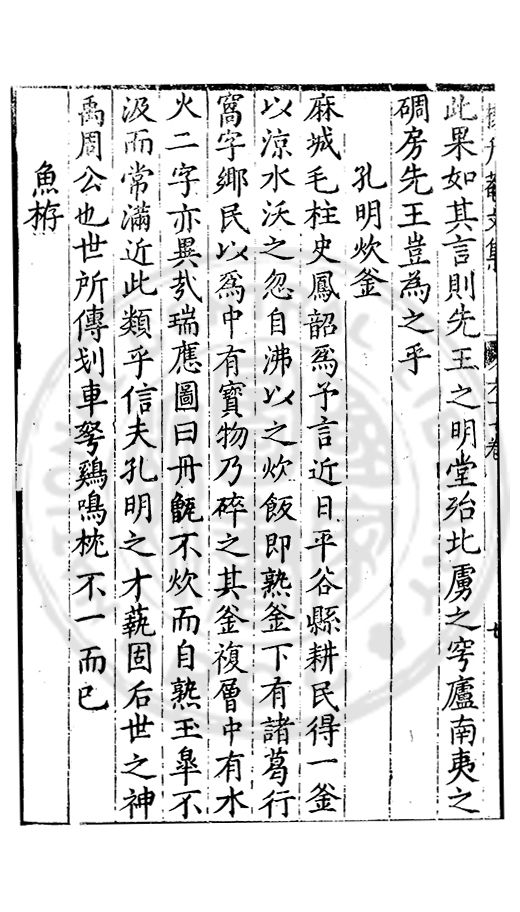 此果如其言則先王之明堂殆北虜之穹廬南夷之
碉房先王豈為之乎
孔明炊釜
麻城毛柱史鳳韶為予言近日平谷縣耕民得一釜
以涼水沃之忽自沸以之炊飯即熟釜下有諸葛行
窩字鄉民以為中有寶物乃碎之其釜複層中有水
火二字亦異哉瑞應圖曰丹甑不炊而自熟玉皐不
汲而常滿近此類乎信夫孔明之才藝固后世之神
禹周公也世所傳刬車弩鷄鳴枕不一而已
魚㭊